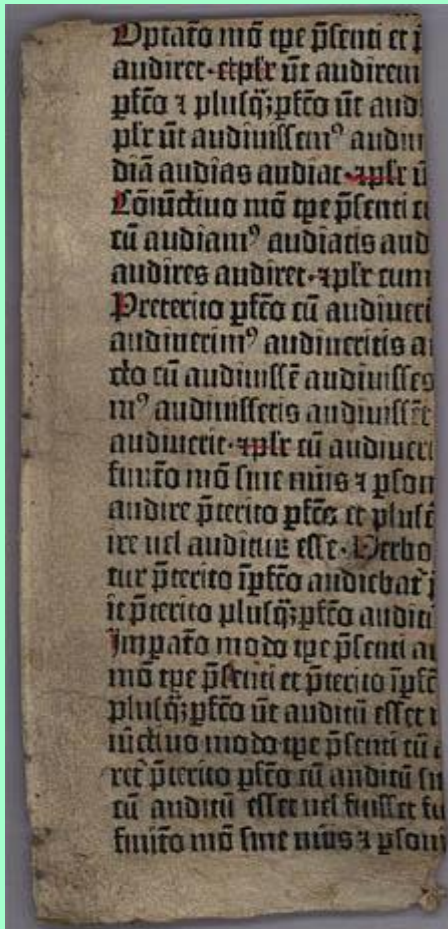 Optato mō tꝑe p̄senti et p̄
audiret·et plr̄ ūt audirem
ꝑfc̄o ⁊ plusq̄ꝫꝑfc̄o ūt aud
plr̄ ūt audiuissemꝰ audiui
diā audias audiat·⁊plr̄ ū
Cōiūctiuo mō tꝑe p̄senti cū
cū audiamꝰ audiatis aud
audires audiret·⁊plr̄ cum
Preterito ꝑfc̄o cū audiueri
audiuerimꝰ audiueritis a
cto cū audiuissē audiuisses
mꝰ audiuissetis audiuissēt
audiuerit·⁊plr̄ cū audiueri
finito mō sine nūis ⁊ ꝑson
audire p̄terito ꝑfc̄o et plusq̄
ire uel auditum esse·Verbo
tur p̄terito īꝑfc̄o audiebat᷑ p̄
it p̄terito plusq̄ꝫꝑfc̄o auditū
Imꝑato modo tꝑe p̄senti au
mō tꝑe p̄senti et p̄terito īꝑfc̄
plusq̄ꝫꝑfc̄o ūt auditū esset
iūctiuo modo tꝑe p̄senti cū
ret᷑ p̄terito ꝑfc̄o cū auditū si
cū auditū esset uel fuisset fu
finito mō sine nūis ⁊ ꝑson